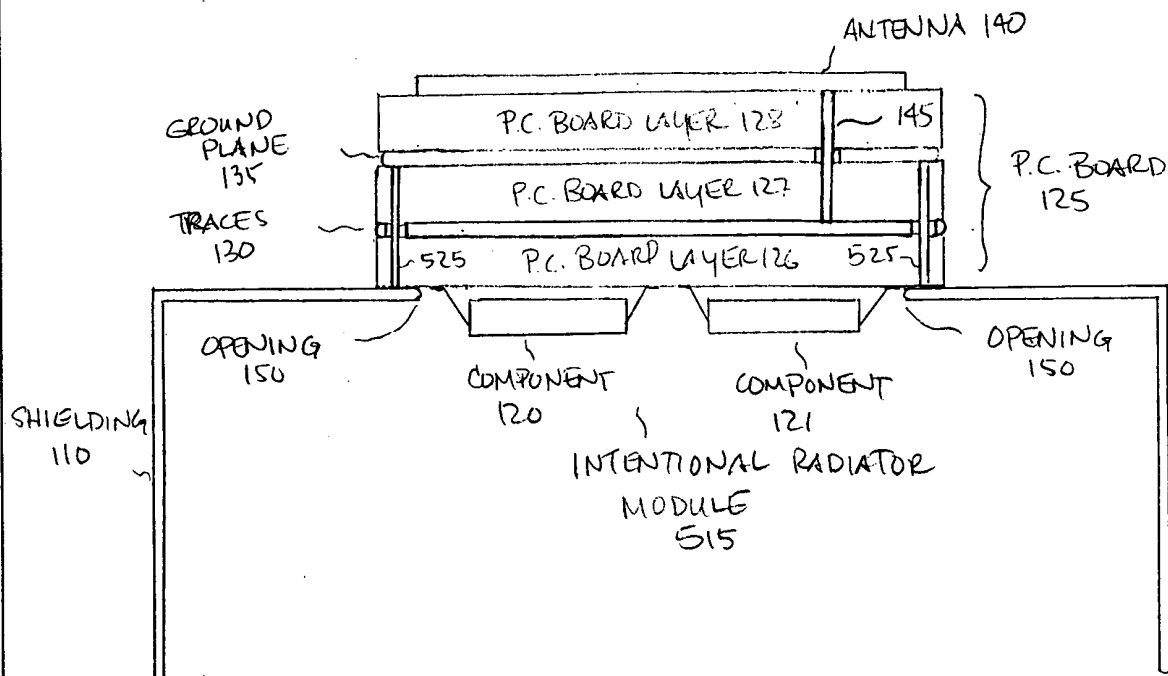 ANTENNA 140
P.C. BOARD LAYER 128
145
GROUND
PLANE
135
P.C. BOARD
125
P.C. BOARD LAYER 127
TRACES
130
525
P.C. BOARD LAYER 126
525
OPENING
150
COMPONENT
120
COMPONENT
121
OPENING
150
SHIELDING
110
INTENTIONAL RADIATOR
MODULE
515